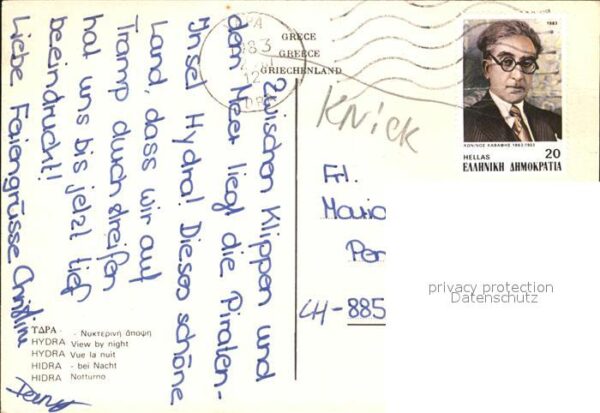 Zwischen Klippen und
dem Meer liegt die Piraten-
Insel Hydra! Dieses schöne
Land, dass wir auf
Tramp durchstreifen
hat uns bis jetzt tief
beeindruckt!
Liebe Feriengrüsse Christina
ΥΔΡΑ - Νυκτερινή άποψη
HYDRA View by night
HYDRA Vue la nuit
HIDRA - bei Nacht
HIDRA Notturno
GRECE
GREECE
GRIECHENLAND
83
12
KNiCK
1983
ΚΩΝ/ΝΟΣ ΚΑΒΑΦΗΣ 1863-1933
HELLAS 20
ΕΛΛΗΝΙΚΗ ΔΗΜΟΚΡΑΤΙΑ
Frl.
CH-885
privacy protection
Datenschutz